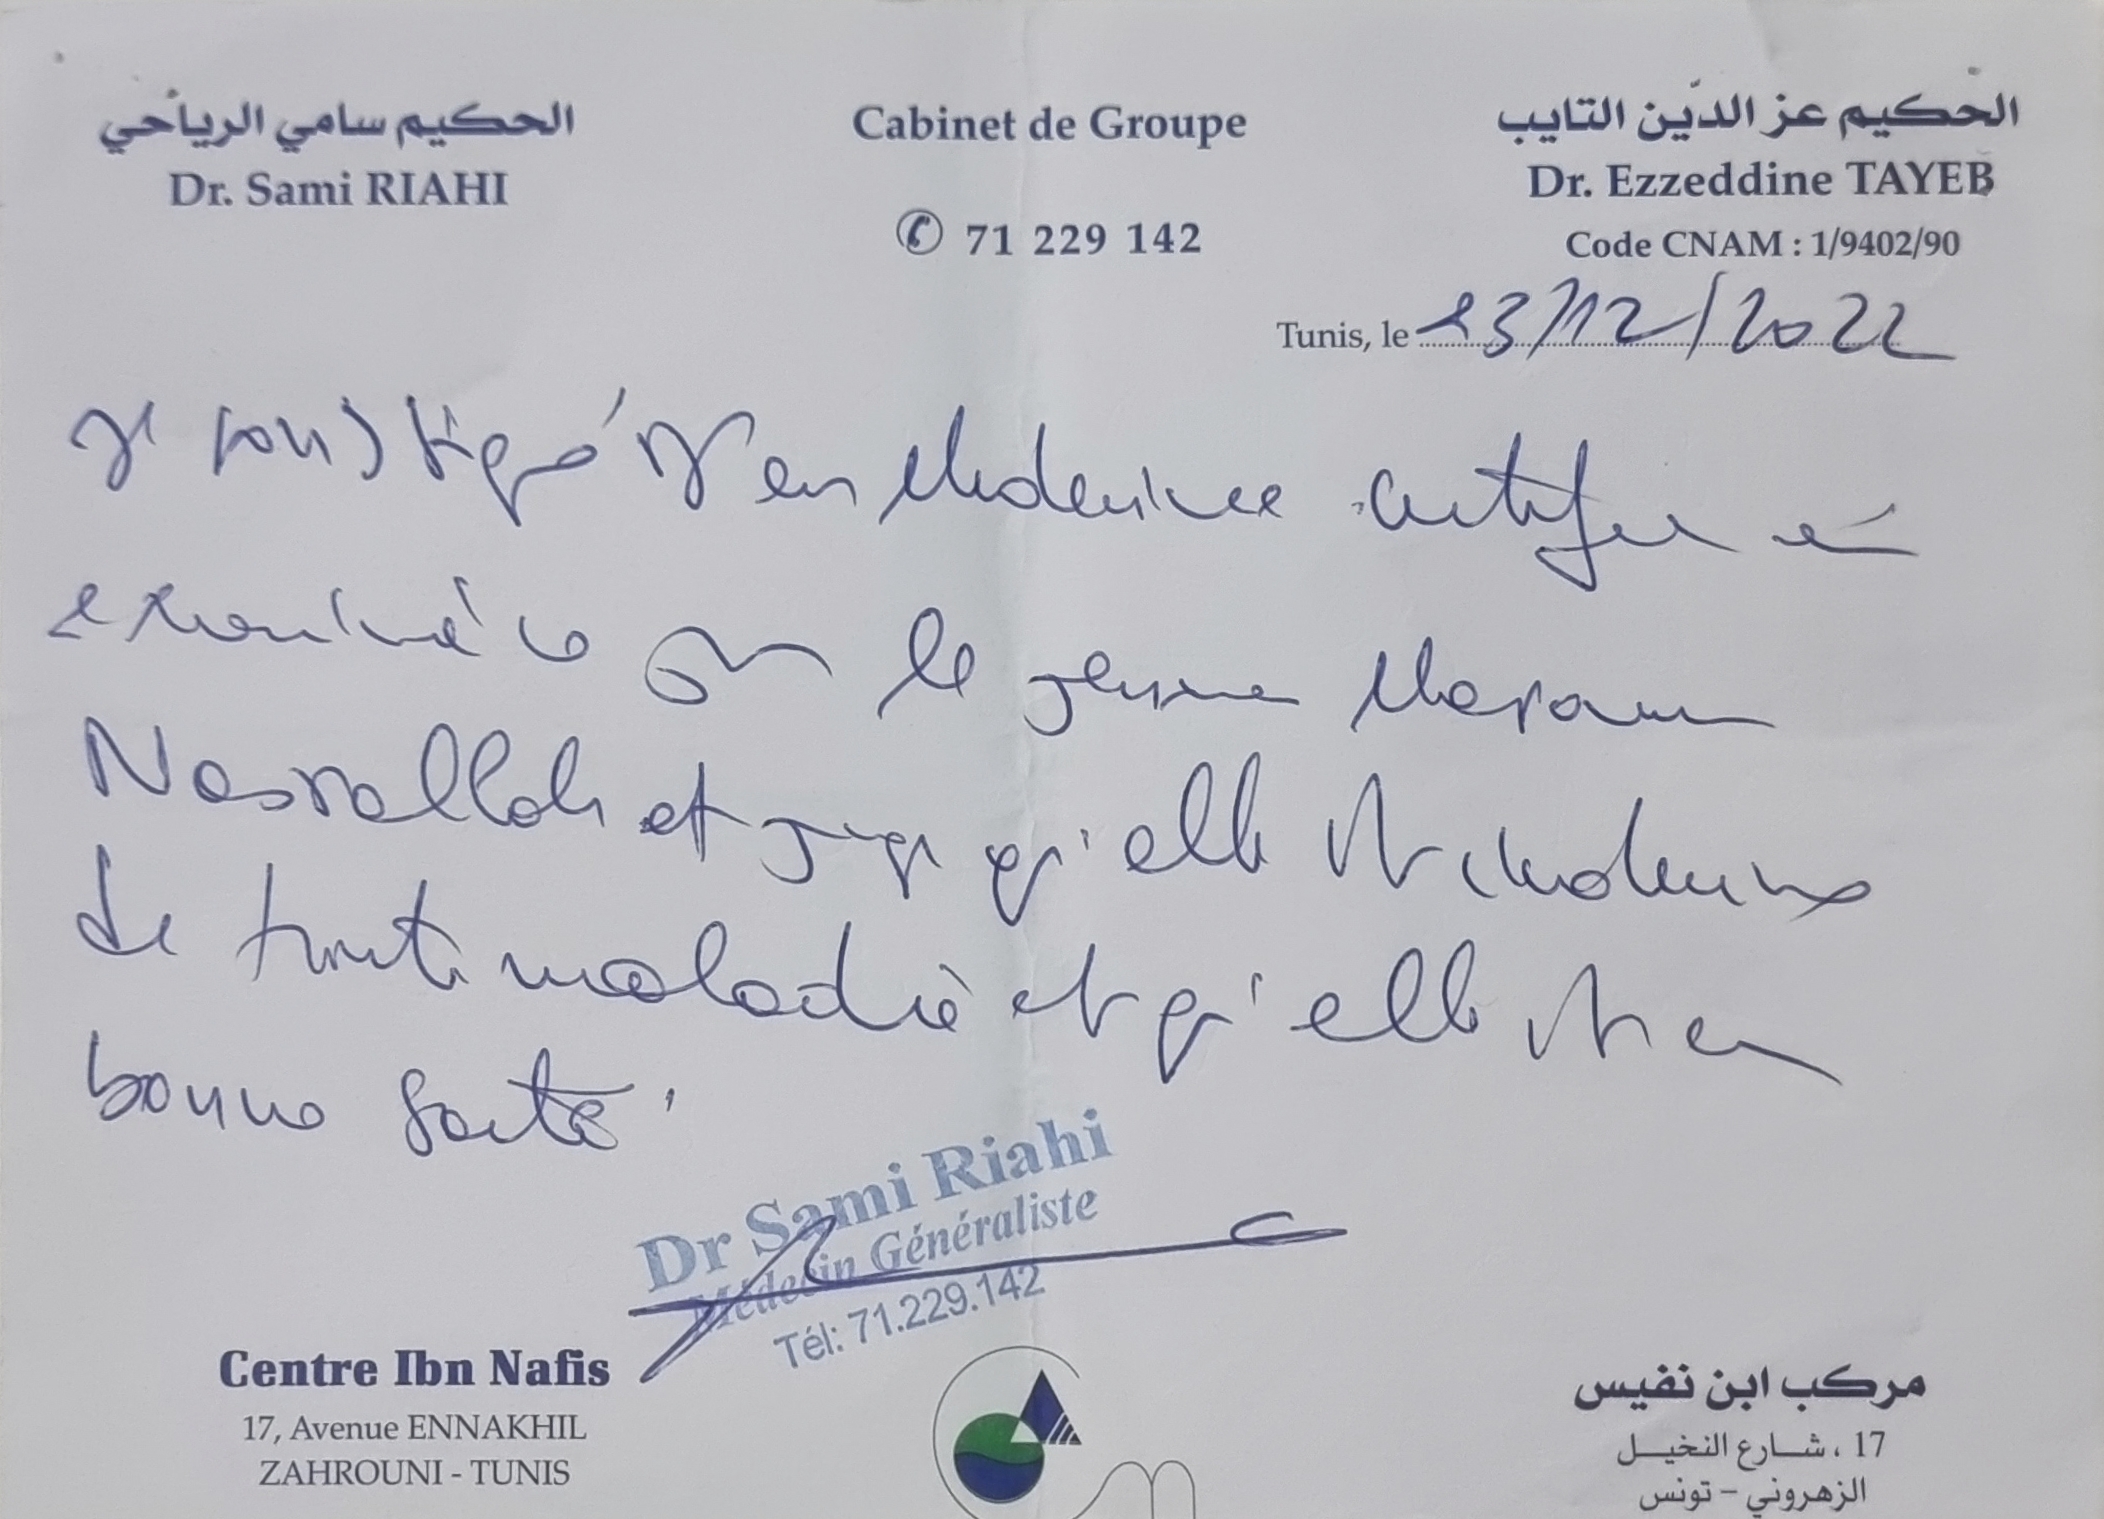 الحكيم سامي الرياحي
Dr. Sami RIAHI
Cabinet de Groupe
71 229 142
الحكيم عز الدّين التايب
Dr. Ezzeddine TAYEB
Code CNAM : 1/9402/90
Tunis, le 23/12/2022
Je soussigné Dr en Médecine certifie avoir
examiné ce jour la jeune Maram
Nasrallah et juge qu'elle est indemne
de toute maladie et qu'elle est en
bonne santé.
Dr Sami Riahi
Médecin Généraliste
Tél: 71.229.142
Centre Ibn Nafis
17, Avenue ENNAKHIL
ZAHROUNI - TUNIS
مركب ابن نفيس
17 ، شارع النخيل
الزهروني - تونس